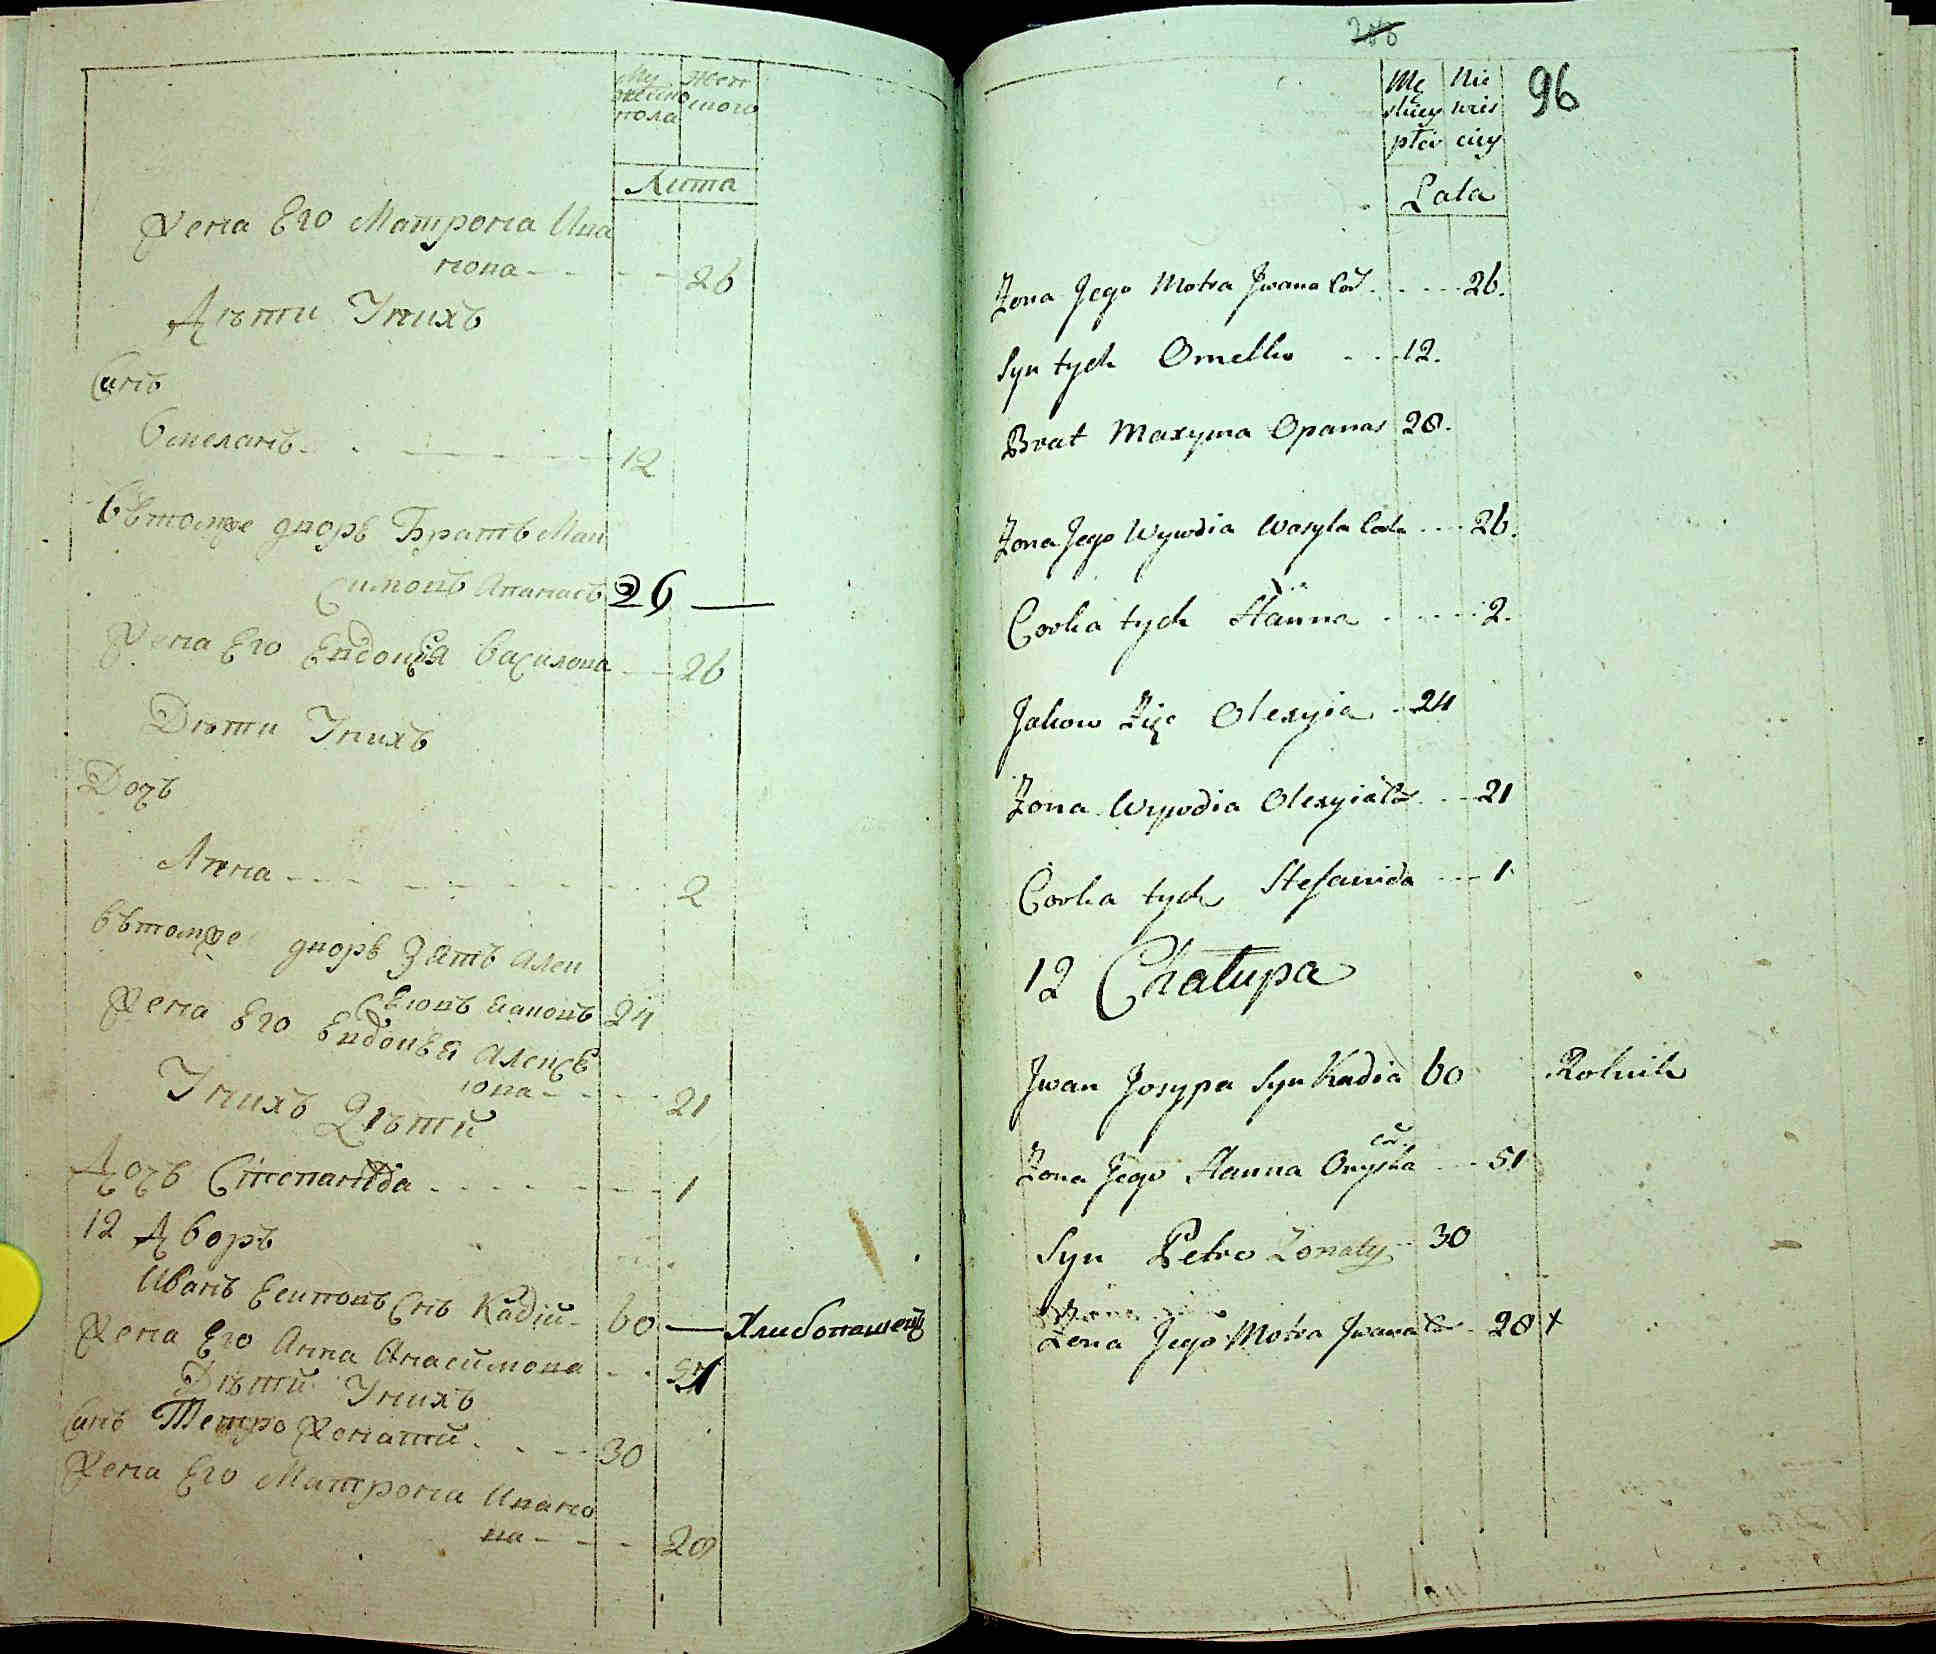 Му жеск
жеска ского
пола
Лита
Жена Его Матрона Ива
нова 26
Дѣти Унихъ
Синъ
Омеланъ 12
Вътомже дворѣ Братъ Мак
симовъ Апанасъ 26
Жена Его Евдокия Василова 26
Дѣти Унихъ
Дочь
Анна 2
Вътомже дворѣ Зять Алек
сеювъ Яковъ 24
Жена Его Евдокия Алексе
юва 21
Унихъ Дѣти
Дочь Степанида 1
12 Дворъ
Иванъ Есиповъ Снъ Кадій 60 Хлибопашецъ
Жена Его Анна Анасимова 51
Дѣти Унихъ
Синъ Петро Женати 30
Жена Его Матрона Ивано
ва 28
96
Mę Nie
skiey wies
płci ciey
Lata
Żona Jego Motra Jwana Cor 26.
Syn tych Omelko 12.
Brat Maxyma Opanas 28.
Żona Jego Wywdia Wasyla Corka 26.
Corka tych Hanna 2.
Jakow Zięc Olexyia 24
Żona Wywdia Olexyia Cor 21
Corka tych Stefanida 1
12 Chałupa
Jwan Josypa Syn Kadia 60 Rolnik
cor.
Żona Jego Hanna Onyska 51
Syn Petro Żonaty 30
Żona Jego Motra Jwana Cor 28 +